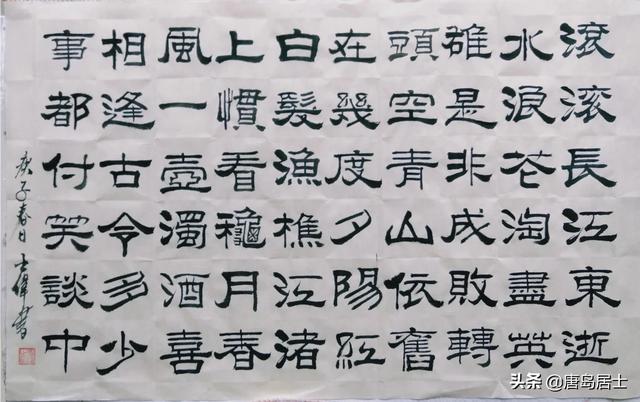 滚滚長江東逝
水浪花淘盡英
雄是非成敗轉
頭空青山依舊
在幾度夕陽紅
白髮漁樵江渚
上慣看龝月春
風一壺濁酒喜
相逢古今多少
事都付笑談中
庚子春日士偉書
头条@唐岛居士